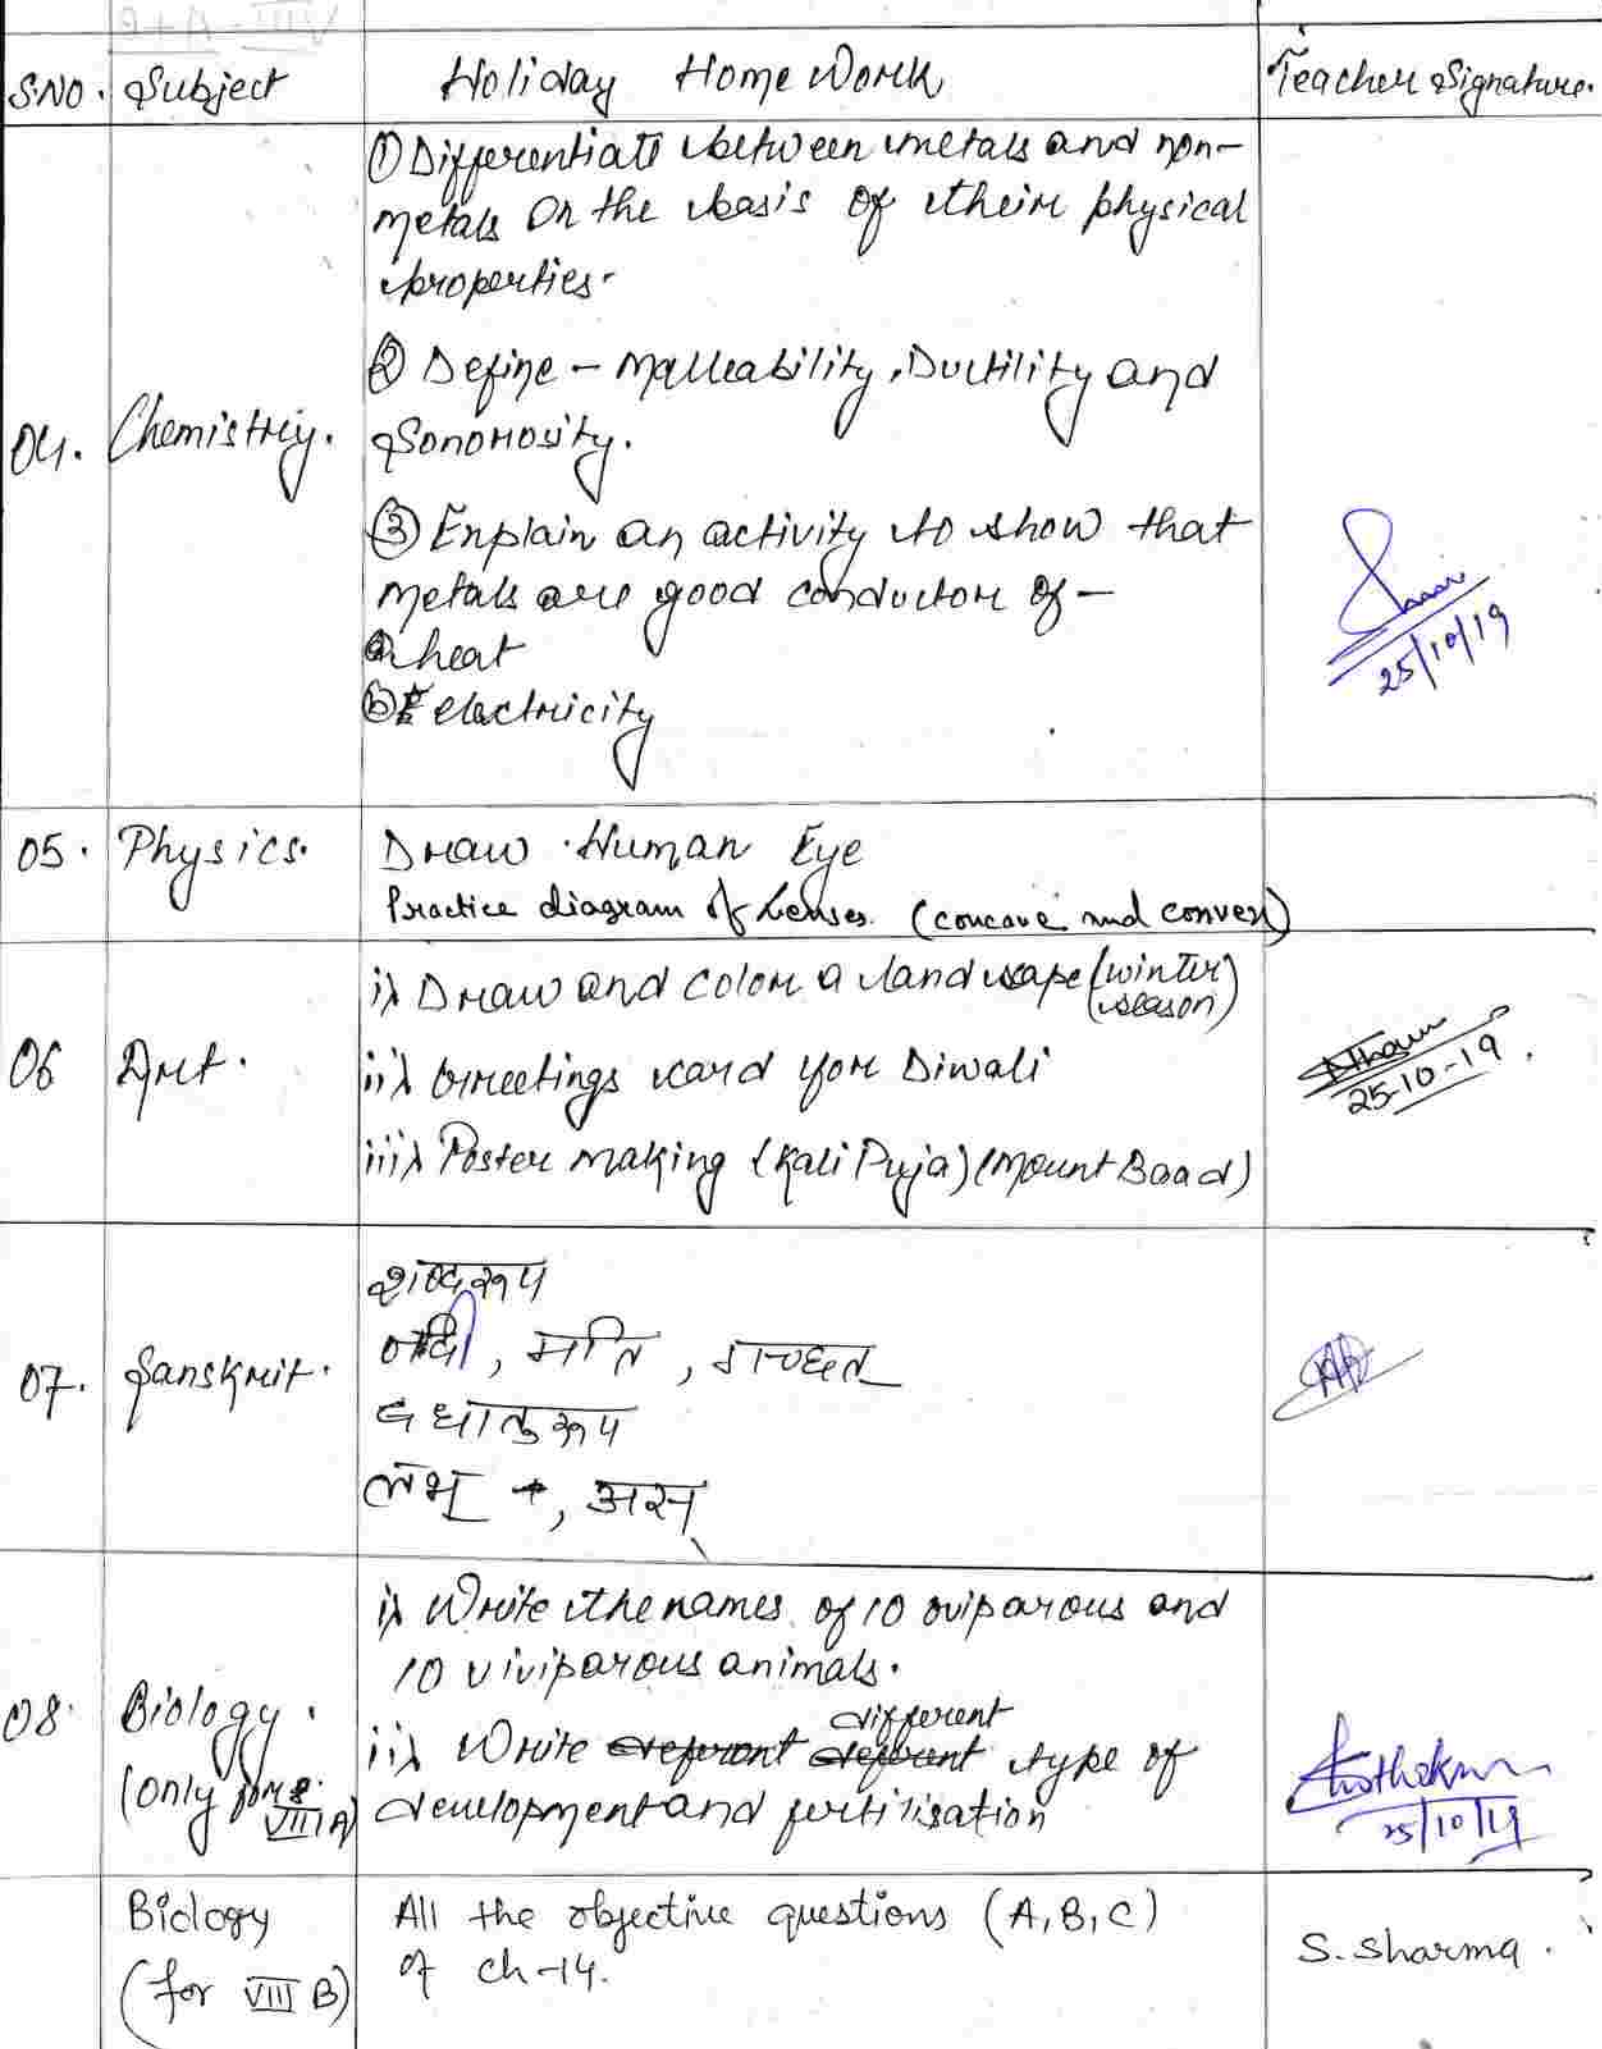 S.NO. Subject Holiday Home Work Teacher Signature.
① Differentiate between metals and non-
metals On the basis of their physical
properties.
② Define - Malleability, Ductility and
Sonorosity.
04. Chemistry.
③ Explain an activity to show that
metals are good conductor of -
ⓐ heat
ⓑ electricity
25/10/19
05. Physics. Draw Human Eye
Practice diagram of Lenses. (concave and convex)
i) Draw and color a landscape (winter
season)
06 Art.
ii) Greetings card for Diwali
25-10-19.
iii) Poster making (Kali Puja) (Mount Board)
शब्दरूप
07. Sanskrit.
नदी, मति, गच्छत्
धातुरूप
लभ्, अस्
i) Write the names of 10 oviparous and
10 viviparous animals.
08. Biology.
(only for
VIII A)
different
ii) Write type of
development and fertilisation
25/10/19
Biology
(for VIII B)
All the objective questions (A, B, C)
of ch-14.
S. Sharma.